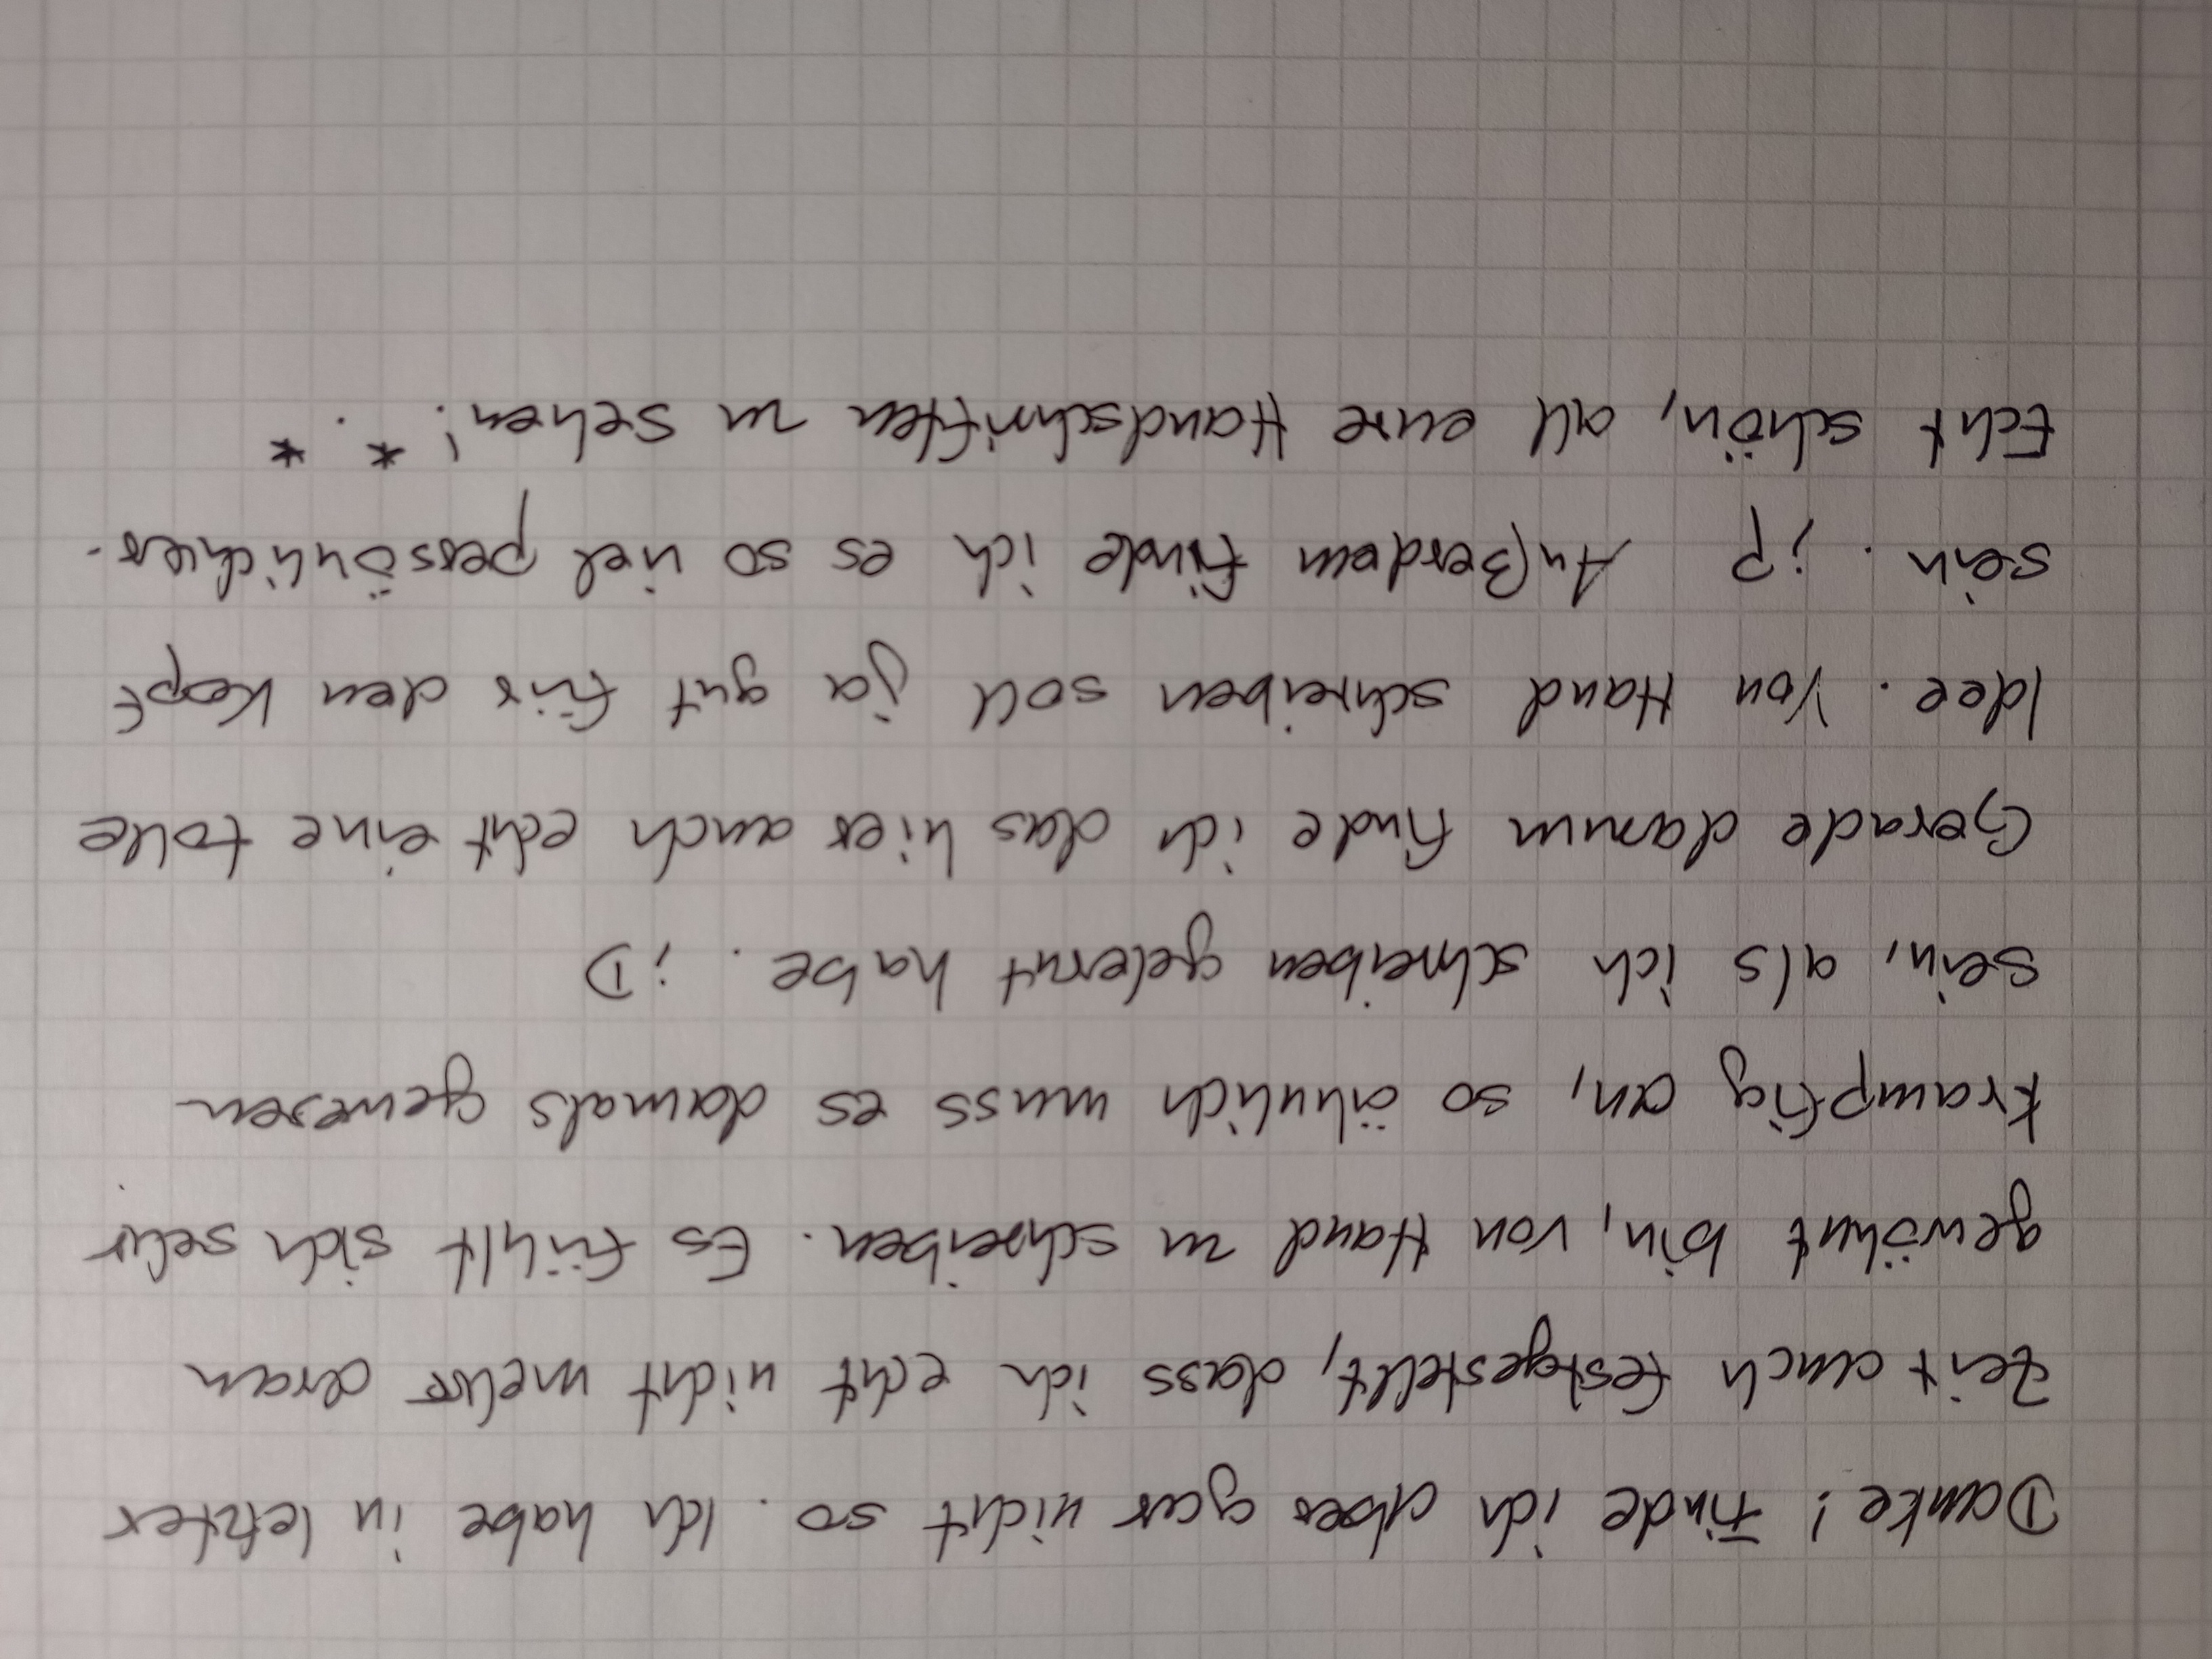 Danke! Finde ich aber gar nicht so. Ich habe in letzter
Zeit auch festgestellt, dass ich echt nicht mehr dran
gewöhnt bin, von Hand zu schreiben. Es fühlt sich sehr
krampfig an, so ähnlich muss es damals gewesen
sein, als ich schreiben gelernt habe. ;D
Gerade darum finde ich das hier auch echt eine tolle
Idee. Von Hand schreiben soll ja gut für den Kopf
sein. ;P Außerdem finde ich es so viel persönlicher.
Echt schön, all eure Handschriften zu sehen! *.*